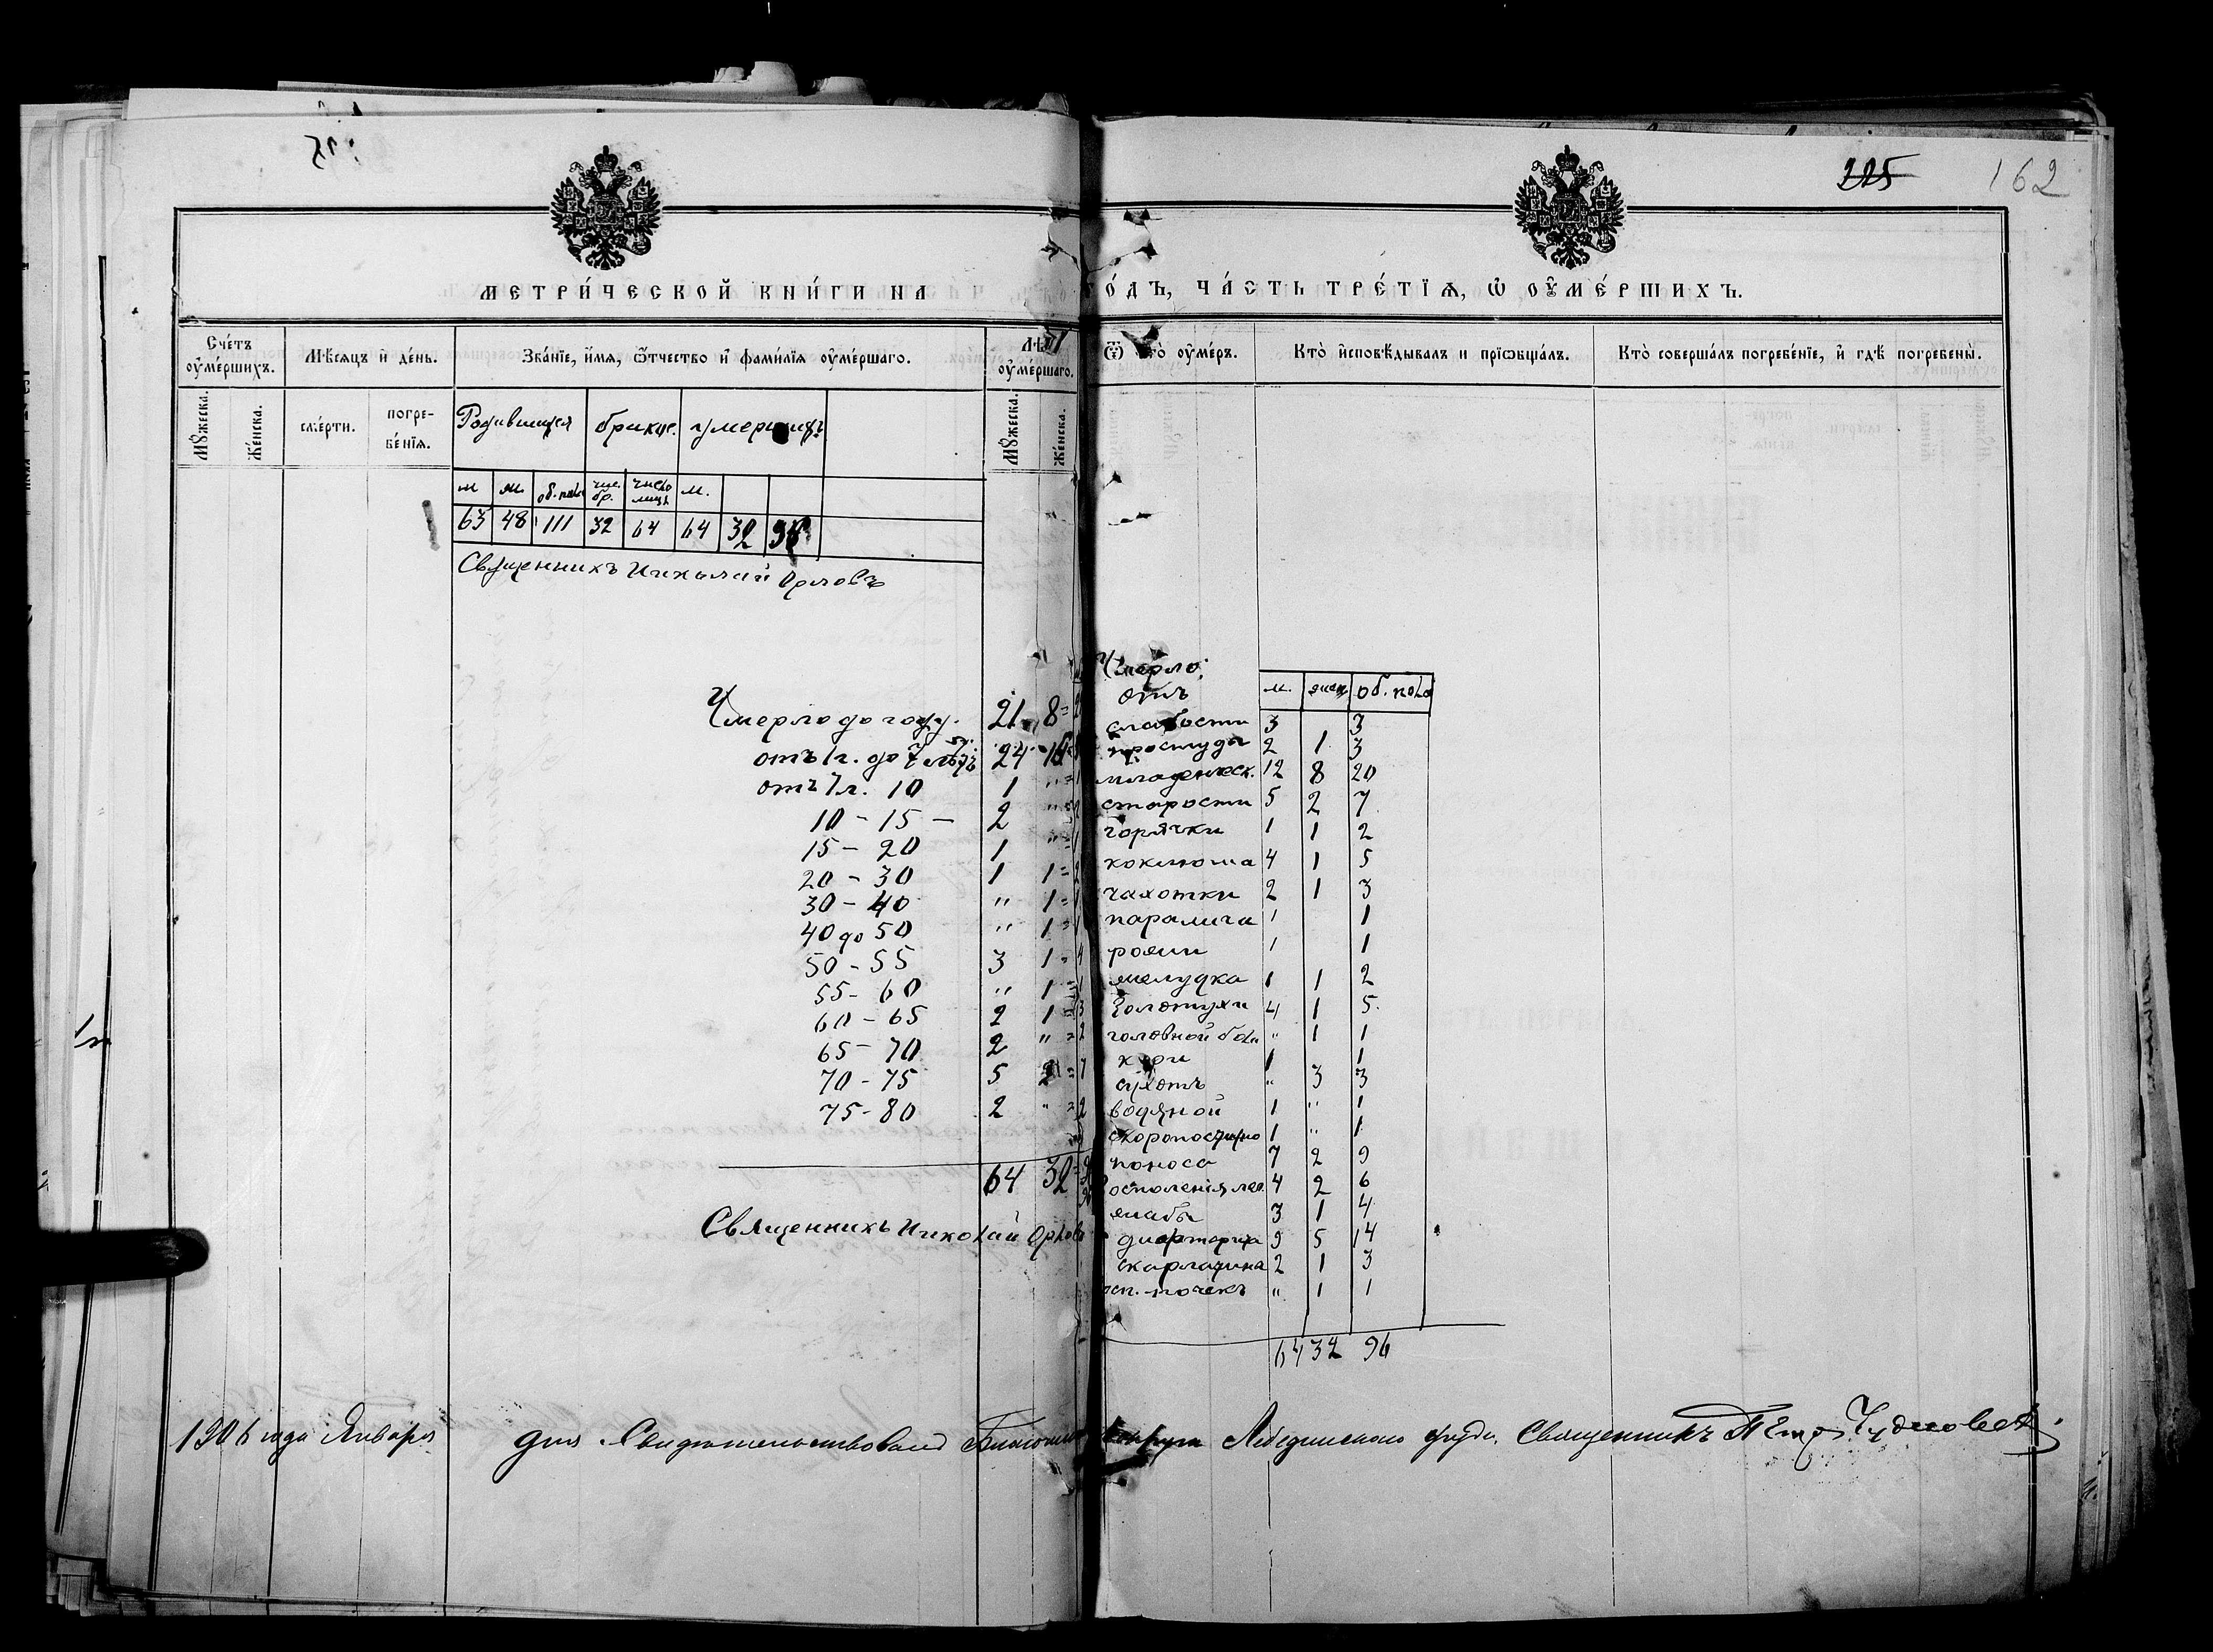 225 162
МЕТРИ́ЧЕСКОЙ КНИ́ГИ НА
ГО́ДЪ, ЧА́СТЬ ТРЕ́ТІѦ, Ѡ ОУ҆МЕ́РШИХЪ.
Сче́тъ оу҆ме́ршихъ.
Мѣ́сѧцъ и҆ де́нь.
Зва́нїе, и҆́мѧ, ѻ҆́тчество и҆ фами́лїѧ оу҆ме́ршагѡ.
Лѣ оу҆ме́ршагѡ.
Ѿ чегѡ̀ оу҆ме́ръ.
Кто̀ и҆сповѣ́дывалъ и҆ прїѡбща́лъ.
Кто̀ соверша́лъ погребе́нїе, и҆ гдѣ̀ погребены̀.
Мꙋ́жеска. Же́нска. сме́рти. погре-бе́нїѧ. Мꙋ́жеска. Же́нска.
Родившихся бракше. умершихъ
м ж. об. пола чис. бр. число лицъ м.
63 48 111 32 64 64 32 96
Священникъ Николай Орловъ
Умерло до году. 21 8
отъ 1 г. до 7 лѣтъ 24 16
отъ 7 л. 10 1 "
10 - 15 - 2 "
15 - 20 1 "
20 - 30 1 1 = 2
30 - 40 " 1 = 1
40 до 50 " 1 = 1
50 - 55 3 1 = 4
55 - 60 " 1 = 1
60 - 65 2 1 = 3
65 - 70 2 " = 2
70 - 75 5 2 = 7
75 - 80 2 " = 2
64 32
Священникъ Николай Орловъ
Умерло:
отъ м. жен. об. пола
слабости 3 3
простуды 2 1 3
младенческ. 12 8 20
старости 5 2 7
горячки 1 1 2
коклюша 4 1 5
чахотки 2 1 3
паралича 1 1
рожи 1 1
желудка 1 1 2
Золотухи 4 1 5
головной боли " 1 1
кори 1 1
сухотъ " 3 3
водяной 1 " 1
скоропостижно 1 " 1
поноса 7 2 9
воспаленія лег. 4 2 6
жабы 3 1 4
дифтерита 9 5 14
скарлатина 2 1 3
восп. почекъ " 1 1
64 32 96
1906 года Января дня Свидѣтельствовалъ Благочинный округа Лебединскаго уѣзда, Священникъ Петръ Чудновскій